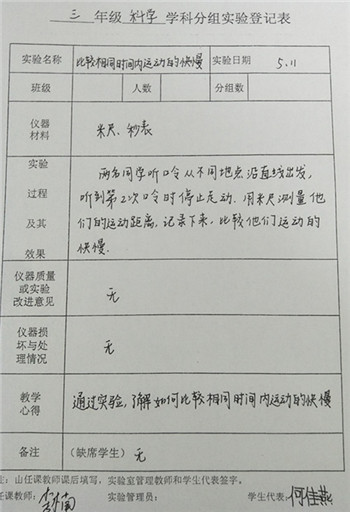 三 年级 科学 学科分组实验登记表
实验名称 比较相同时间内运动的快慢 实验日期 5.11
班级 人数 分组数
仪器材料 米尺、秒表
实验过程及其效果 两名同学听口令从不同地点沿直线出发,
听到第2次口令时停止走动.用米尺测量他
们的运动距离,记录下来,比较他们运动的
快慢.
仪器质量或实验改进意见 无
仪器损坏与处理情况 无
教学心得 通过实验,了解如何比较相同时间内运动的快慢
备注 (缺席学生) 无
注:由任课教师课后填写,实验室管理教师和学生代表签字。
任课教师: 实验管理员: 学生代表: 何佳燕